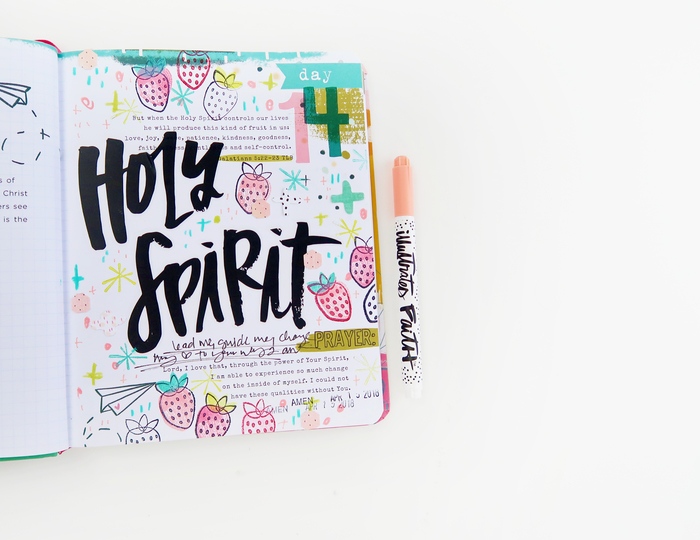 s of
Christ
ers see
is the
day
14
But when the Holy Spirit controls our lives
he will produce this kind of fruit in us:
love, joy, patience, kindness, goodness,
and self-control.
Galatians 5:22-23 TLB
HOLY
SPIRIT
lead me, guide me, change
my ♡ to your ways an
PRAYER:
Lord, I love that, through the power of Your Spirit,
I am able to experience so much change
on the inside of myself. I could not
have these qualities without You.
AMEN AMEN APR 19 2018
APR 19 2018
illustrated Faith